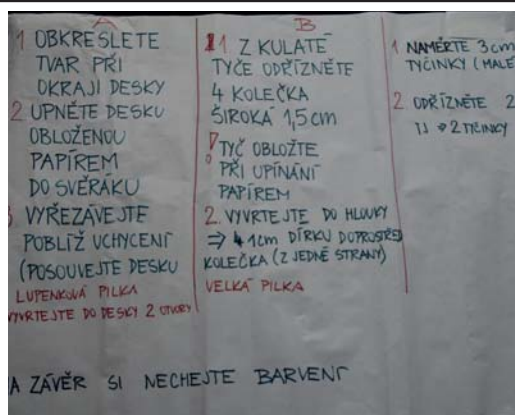 A
1 OBKRESLETE
TVAR PŘI
OKRAJI DESKY
2 UPNĚTE DESKU
OBLOŽENOU
PAPÍREM
DO SVĚRÁKU
3 VYŘEZÁVEJTE
POBLÍŽ UCHYCENÍ
(POSOUVEJTE DESKU
LUPENKOVÁ PILKA
VYVRTEJTE DO DESKY 2 OTVORY
B
1 Z KULATÉ
TYČE ODŘÍZNĚTE
4 KOLEČKA
ŠIROKÁ 1,5 cm
! TYČ OBLOŽTE
PŘI UPÍNÁNÍ
PAPÍREM
2. VYVRTEJTE DO HLOUKY
⇒ 1cm DÍRKU DOPROSTŘED
KOLEČKA (Z JEDNÉ STRANY)
VELKÁ PILKA
1 NAMĚŘTE 3cm
TYČINKY (MALÉ
2 ODŘÍZNĚTE 2
2 TYČINKY
A ZÁVĚR SI NECHEJTE BARVENÍ